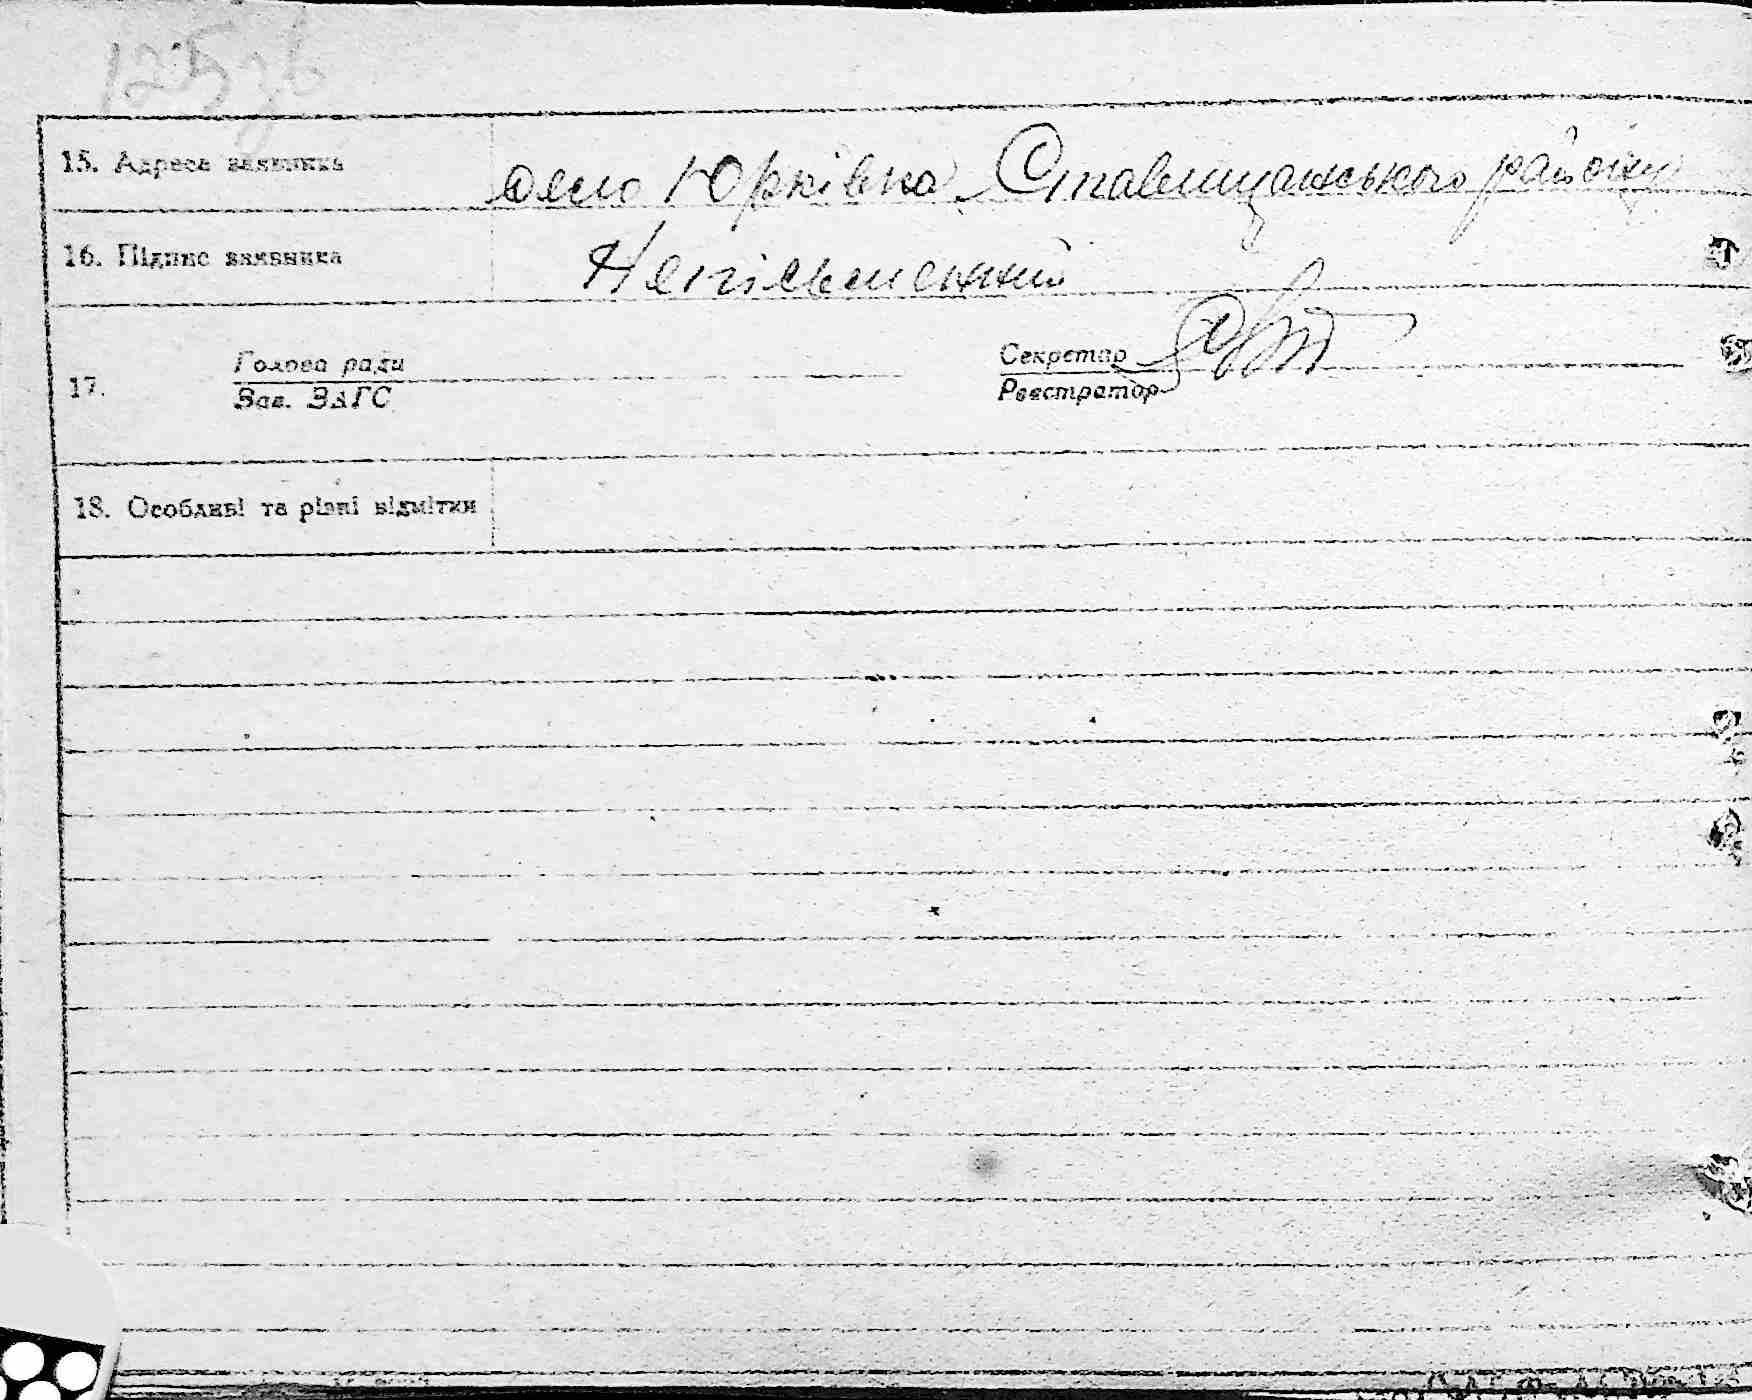 125зв
15. Адреса заявника село Юрківка Ставищанського району
16. Підпис заявника Неписьменний
17. Голова ради Секретар
Зав. ЗАГС Реєстратор
18. Особливі та різні відмітки